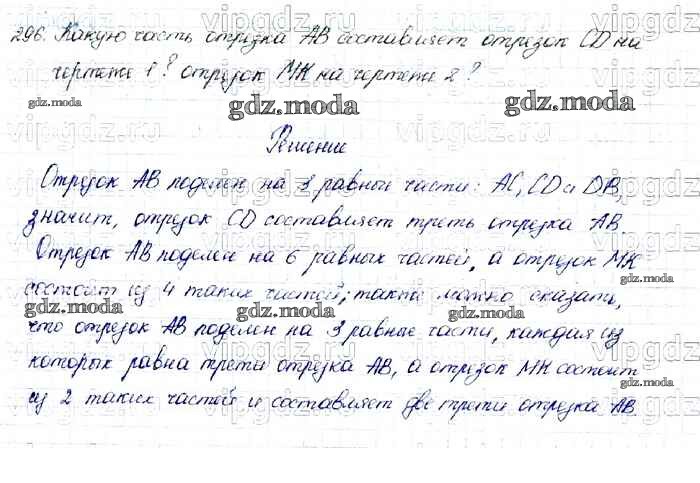 296. Какую часть отрезка AB составляет отрезок CD на
чертеже 1? отрезок MK на чертеже 2?
Решение
Отрезок AB поделен на 3 равные части: AC, CD и DB,
значит, отрезок CD составляет треть отрезка AB.
Отрезок AB поделен на 6 равных частей, а отрезок MK
состоит из 4 таких частей; также можно сказать,
что отрезок AB поделен на 3 равные части, каждая из
которых равна трети отрезка AB, а отрезок MK состоит
из 2 таких частей и составляет две трети отрезка AB